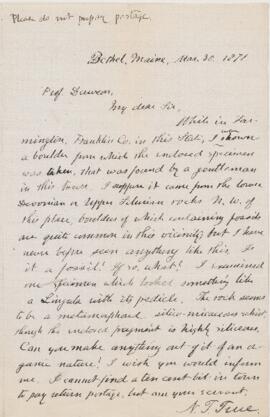 Please do not prepay postage.
Bethel, Maine, Mar. 30, 1871
Prof. Dawson,
My dear Sir,
While in Far-
mington, Franklin Co. in this State, I was shown
a boulder from which the enclosed specimen
was taken, that was found by a gentleman
in this town. I suppose it came from the lower
Devonian or Upper Silurian rocks N. W. of
this place, boulders of which containing fossils
are quite common in this vicinity; but I have
never before seen anything like this. Is
it a fossil? If so, what? I examined
one specimen which looked something like
a Lingula with its pedicle. The rock seems
to be a metamorphosed silico-micaceous
though the enclosed fragment is highly silicious.
Can you make anything out of it of an or-
ganic nature? I wish you would inform
me. I cannot find a ten cent bit in town
to pay return postage, but am your servant,
N. T. True